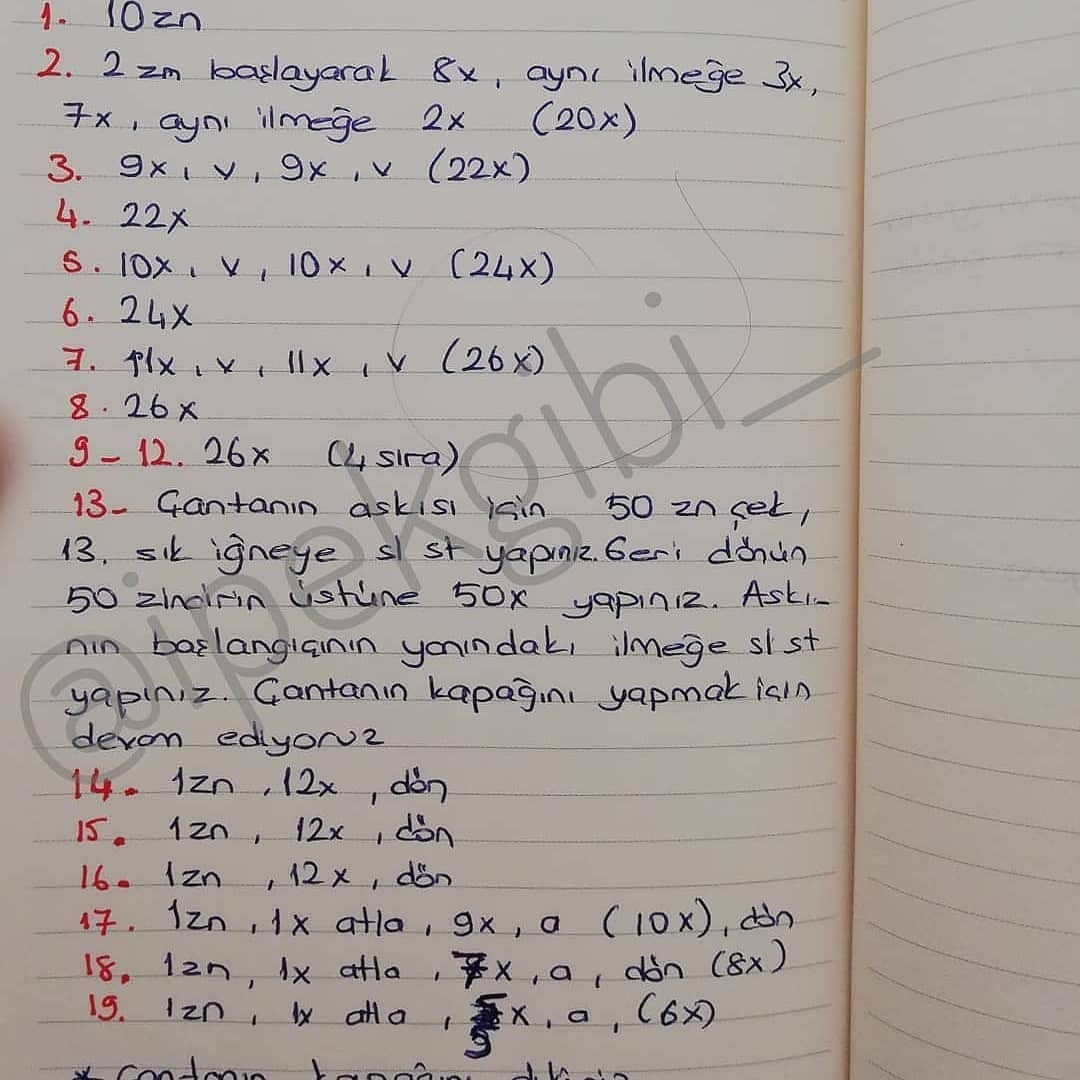 1. 10zn
2. 2 zn başlayarak 8x, aynı ilmeğe 3x,
7x, aynı ilmeğe 2x (20x)
3. 9x, v, 9x, v (22x)
4. 22x
5. 10x, v, 10x, v (24x)
6. 24x
7. 11x, v, 11x, v (26x)
8. 26x
9-12. 26x (4 sıra)
13- Çantanın askısı için 50 zn çek,
13. sık iğneye sl st yapınız. Geri dönün
50 zincirin üstüne 50x yapınız. Askı-
nın başlangıçının yanındakı ilmeğe sl st
yapınız. Çantanın kapağını yapmak için
devam ediyoruz
14. 1zn, 12x, dön
15. 1zn, 12x, dön
16. 1zn, 12x, dön
17. 1zn, 1x atla, 9x, a (10x), dön
18. 1zn, 1x atla, 7x, a, dön (8x)
19. 1zn, 1x atla, 5x, a, (6x)
* Çantanın kapağını
@ipekgibi_